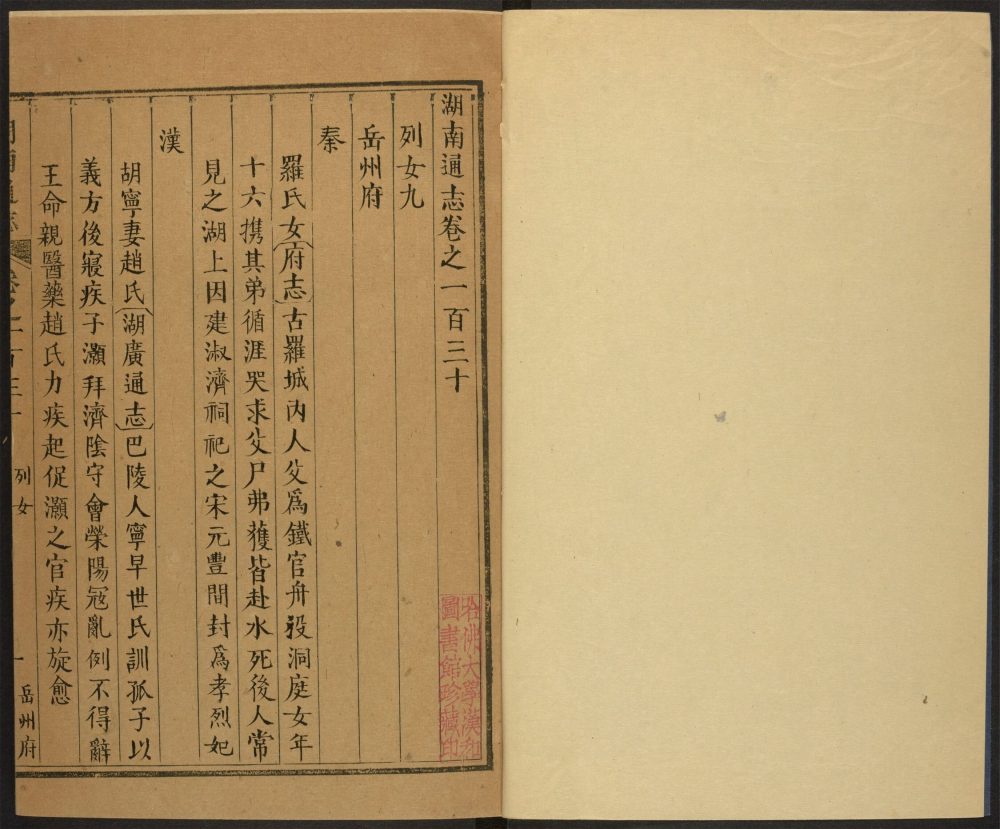 湖南通志卷之一百三十
列女九
岳州府
秦
羅氏女〔府志〕古羅城內人父爲鐵官舟歿洞庭女年
十六攜其弟循涯哭求父尸弗獲皆赴水死後人常
見之湖上因建淑濟祠祀之宋元豐間封爲孝烈妃
漢
胡寧妻趙氏〔湖廣通志〕巴陵人寧早世氏訓孤子以
義方後寢疾子灝拜濟陰守會榮陽寇亂例不得辭
王命親醫藥趙氏力疾起促灝之官疾亦旋愈
湖南通志 卷之一百三十 列女 一 岳州府
哈佛大學漢和
圖書館珍藏印